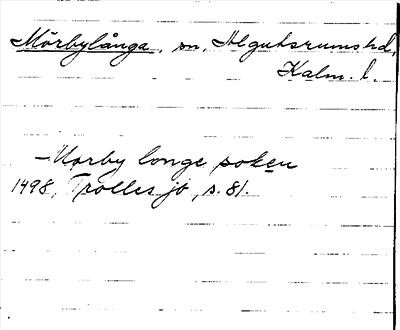 Mörbylånga, sn, Algutsrums hd,
Kalm. l.
– Morby longe soken
1498, Trolles jb, s. 81.